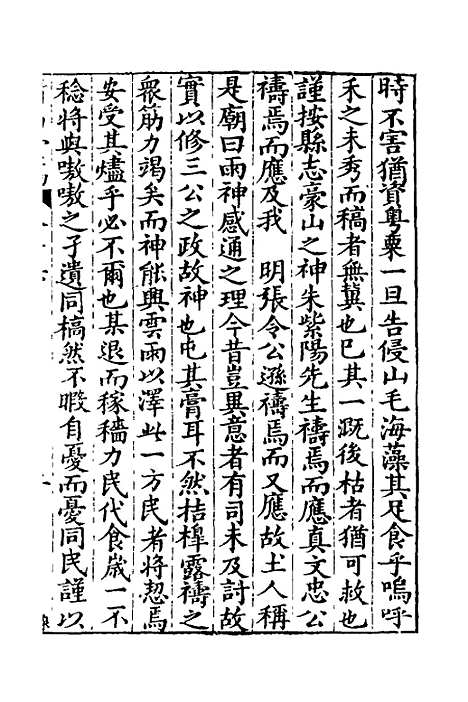 時不害猶資粤粟一旦告侵山毛海藻其足食乎嗚呼
禾之未秀而稿者無冀也已其一溉後枯者猶可救也
謹按縣志豪山之神朱紫陽先生禱焉而應真文忠公
禱焉而應及我　明張令公遜禱焉而又應故土人稱
是廟曰雨神感通之理今昔豈異意者有司未及討故
實以修三公之政故神也屯其膏耳不然桔槔露禱之
衆筋力渴矣而神能興雲雨以澤此一方民者將恝焉
安受其燼乎必不爾也某退而稼穡力民代食歲一不
稔將與嗷嗷之孑遺同槁然不暇自憂而憂同民謹以